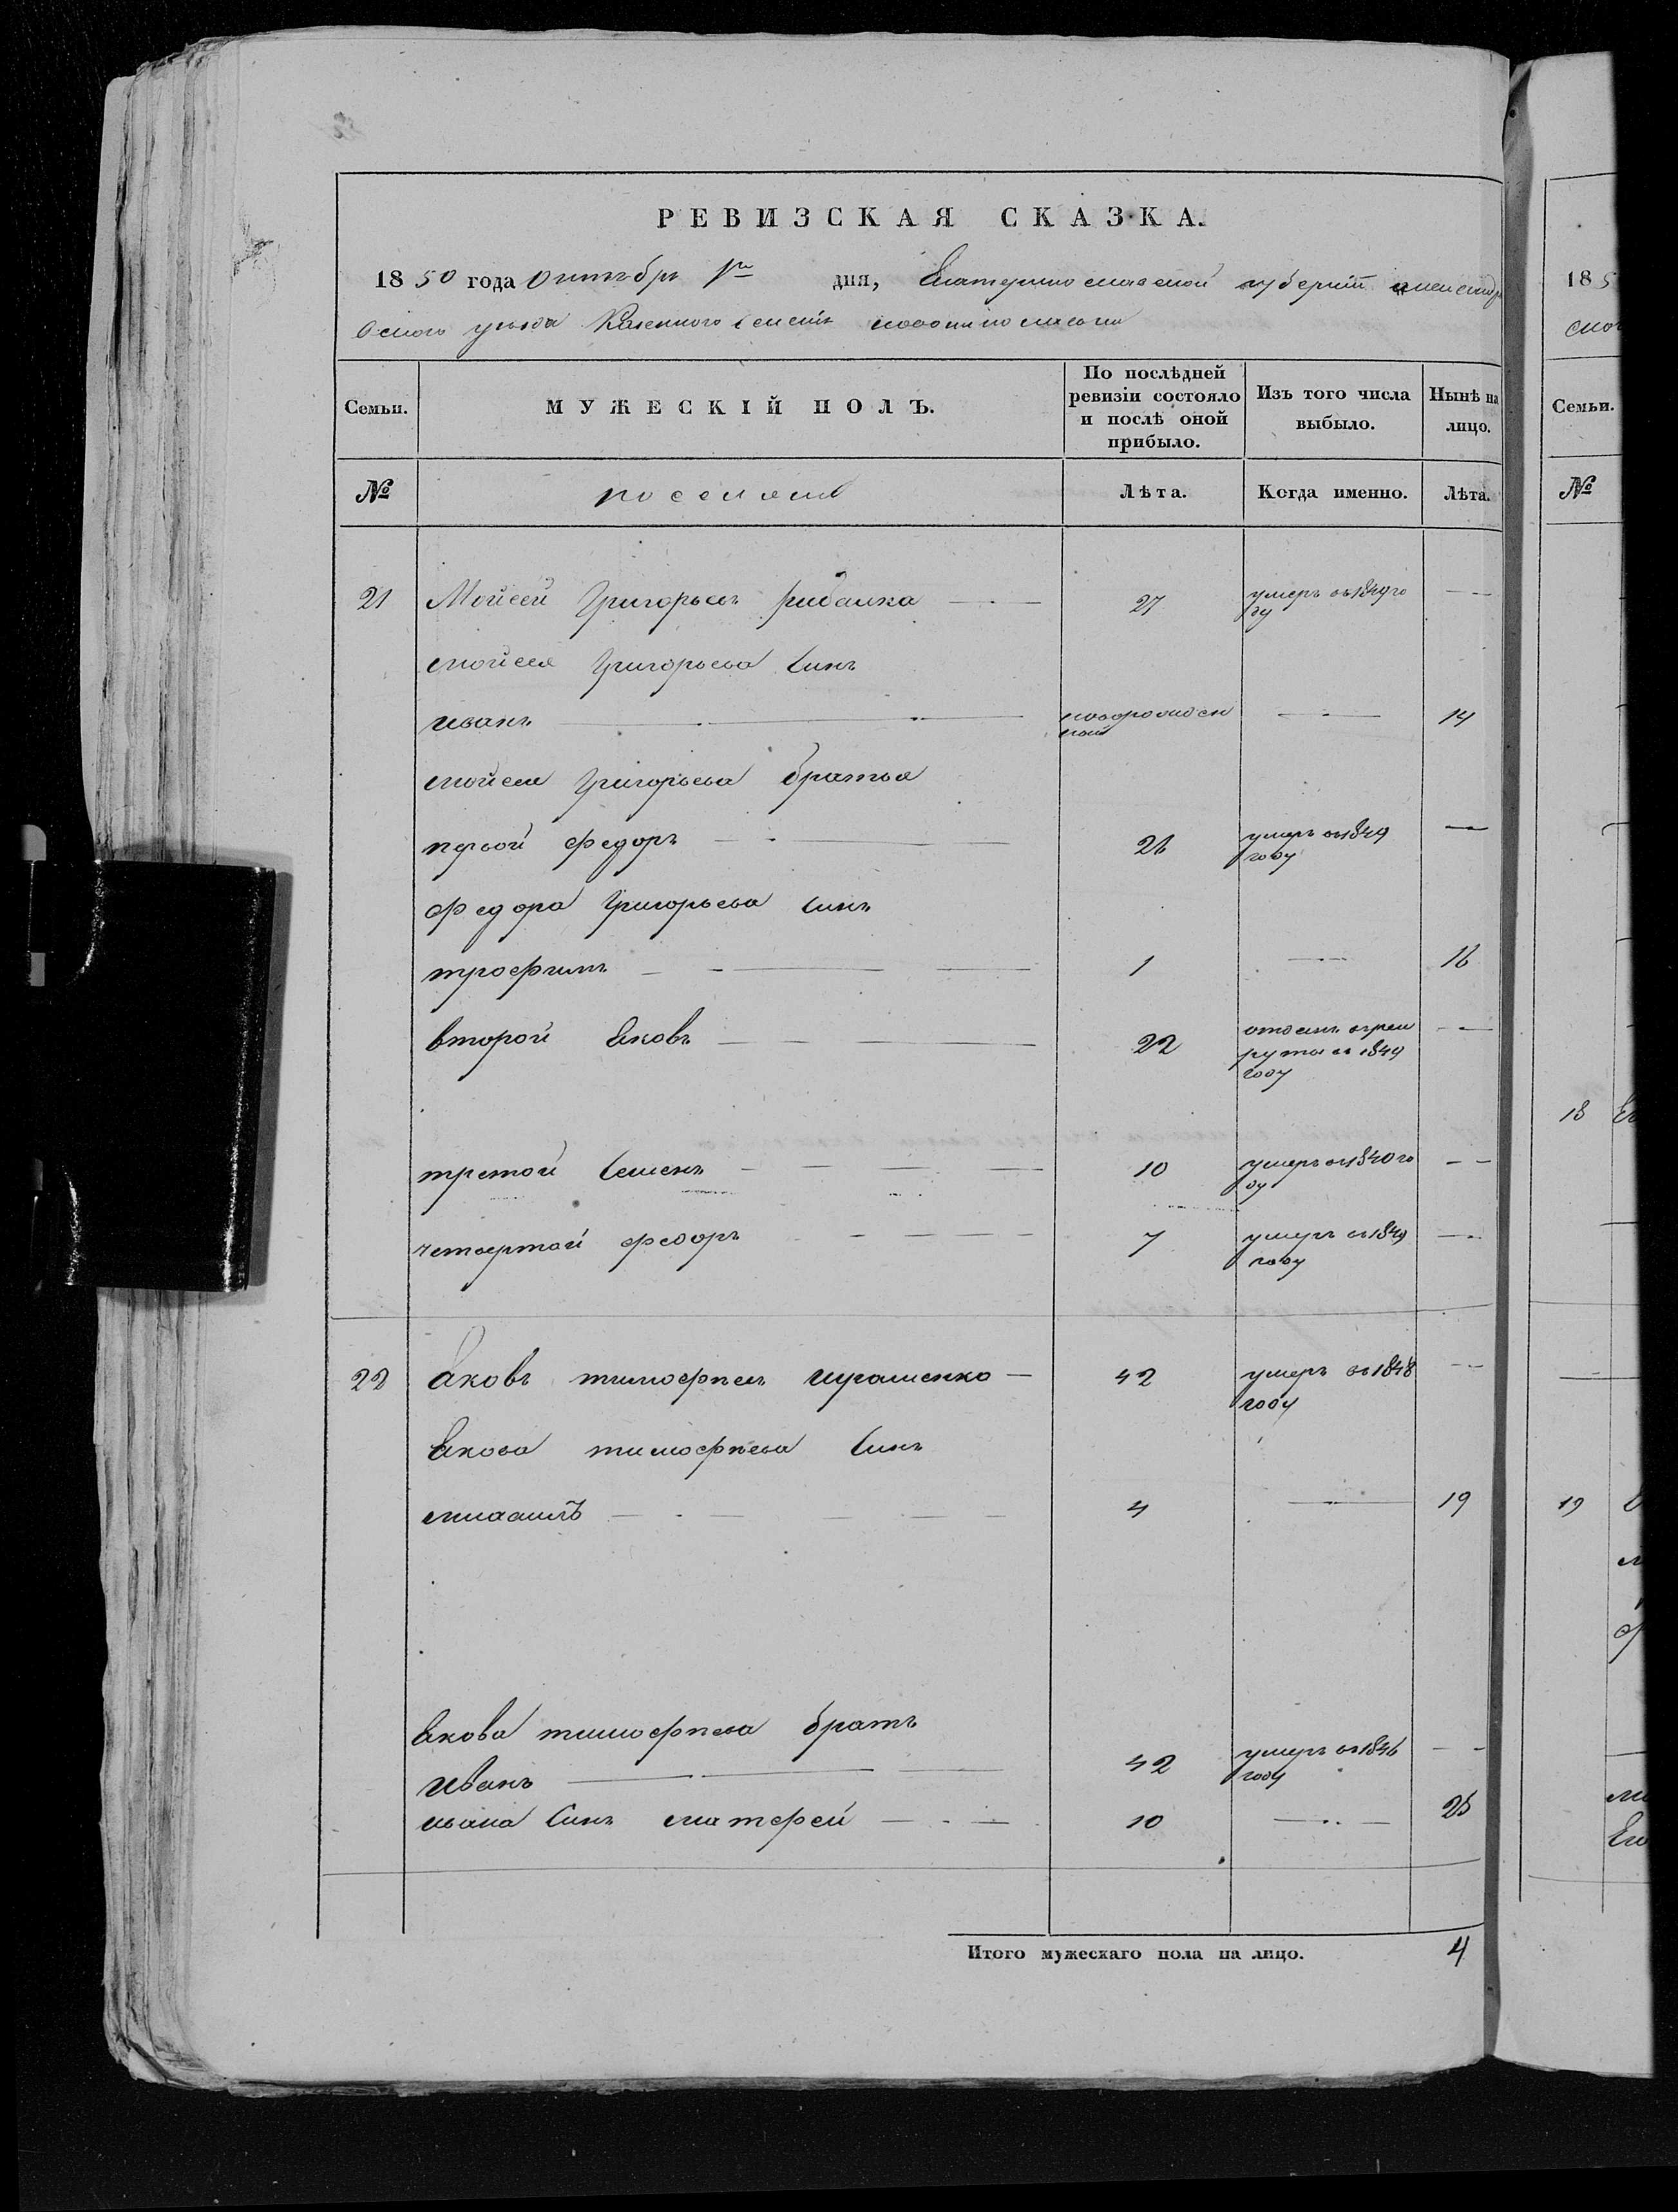 РЕВИЗСКАЯ СКАЗКА.
1850 года Октябр 1го дня, Екатеринославской губерній Александр
овского уезда Казенного Селенія новониколаевки
Семьи. МУЖЕСКІЙ ПОЛЪ. По послѣдней ревизіи состояло и послѣ оной прибыло. Изъ того числа выбыло. Нынѣ на лицо.
№ поселянъ Лѣта. Когда именно. Лѣта.
21 Мойсей Григорьевъ рибалка 27 умеръ въ 1849 го
ду
мойсея Григорьева Синъ
иванъ новорожден
ной 14
мойсея Григорьева братья
первой федоръ 26 умеръ въ 1849
году
федора Григорьева Синъ
трофимъ 1 16
второй Яковъ 22 отданъ в рек
руты в 1849
году
третой Семенъ 10 умеръ въ 1840 го
ду
четвертой федоръ 7 умеръ въ 1849
году
22 Яковъ тимофеевъ 42 умеръ въ 1848
году
Якова тимофеева Синъ
михаилъ 4 19
Якова тимофеева братъ
Иванъ 42 умеръ въ 1846
году
ивана Синъ матфей 10 25
Итого мужескаго пола на лицо. 4
185
ско
Семьи.
№
18
19